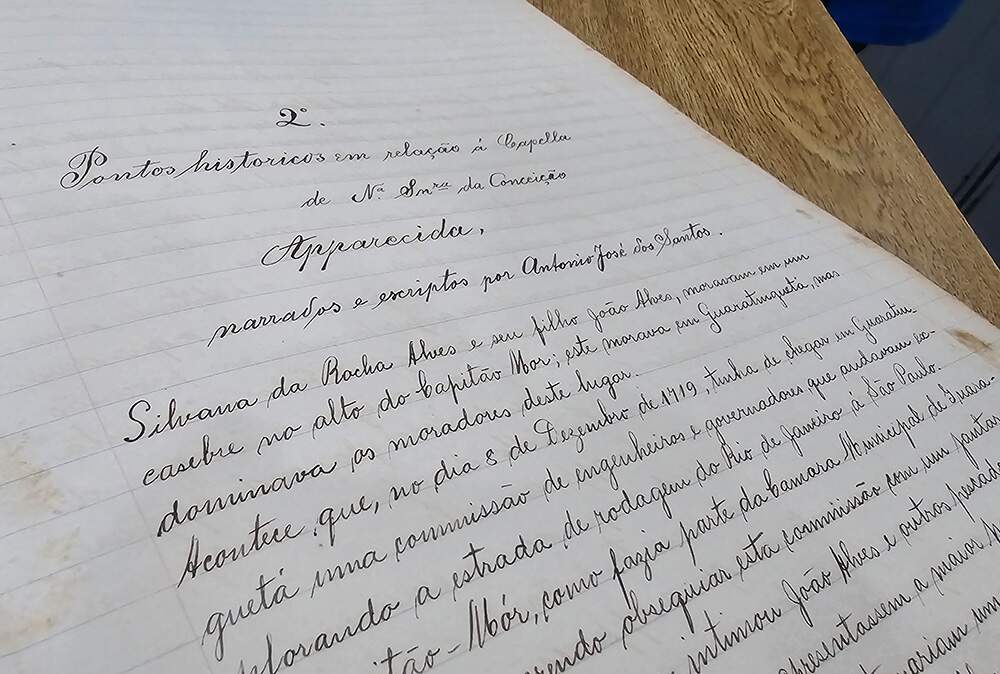 2º.
Pontos historicos em relação á Capella
de Nª Snra da Conceição
Apparecida,
narrados e escriptos por Antonio José dos Santos.
Silvana da Rocha Alves e seu filho João Alves, moravam em um
casebre no alto do Capitão Mor; este morava em Guaratinguetá, mas
dominava os moradores deste lugar.
Acontece que, no dia 8 de Dezembro de 1719, tinha de chegar em Guaratin-
guetá uma commissão de engenheiros e governadores que andavam ex-
plorando a estrada de rodagem do Rio de Janeiro á São Paulo.
tão-Mór, como fazia parte da Camara Municipal de Guara-
rendo obsequiar esta commissão com um jantar
intimou João Alves e outros pescado
presentassem a maior
variam um